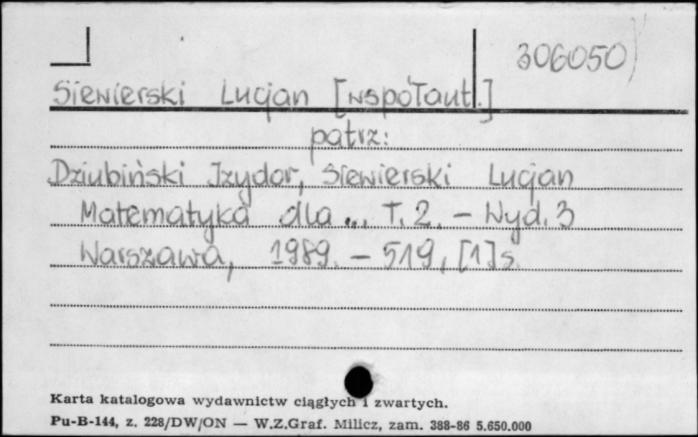 306050
Siewierski Lucjan [współaut.]
patrz:
Dziubiński Izydor, Siewierski Lucjan
Matematyka dla ... T. 2. – Wyd. 3
Warszawa, 1989. – 519, [1] s.
Karta katalogowa wydawnictw ciągłych i zwartych.
Pu-B-144, z. 228/DW/ON — W.Z.Graf. Milicz, zam. 388-86 5.650.000